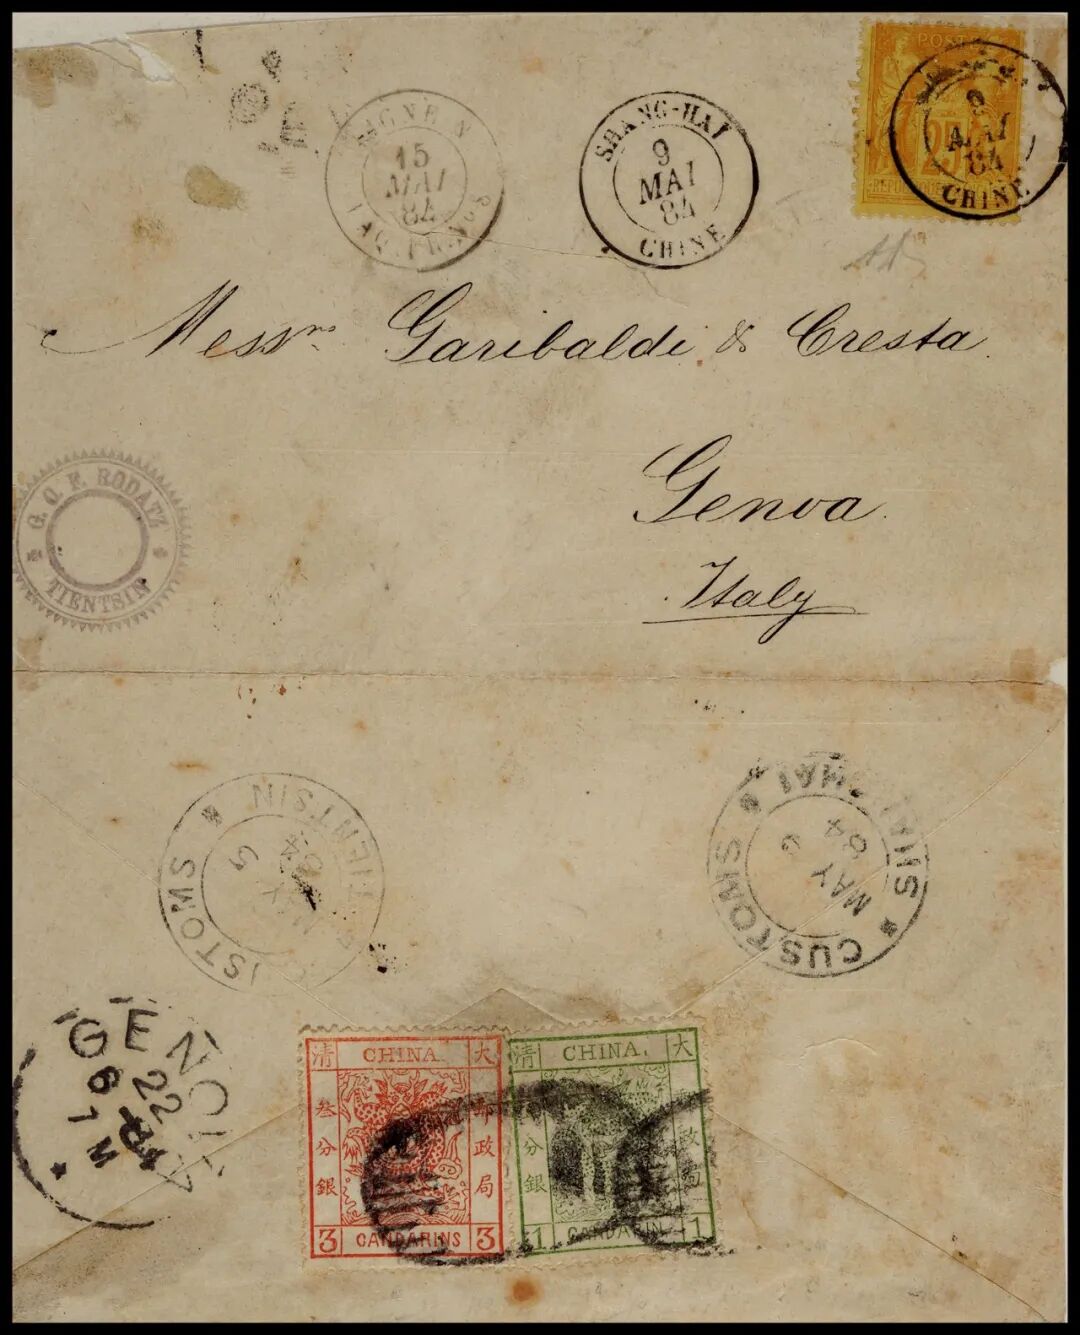 LIGNE N
15
MAI
84
PAQ. FR. Nº 8
SHANG-HAI
9
MAI
84
CHINE
POSTES
25
REPUBLIQUE
9
MAI
84
CHINE
Messrs. Garibaldi & Cresta
Genva
Italy
G. O. F. RODATZ
TIENTSIN
CUSTOMS
TIENTSIN
MAY
5
84
CUSTOMS
SHANGHAI
MAY
9
84
GENOVA
22
6 1
清 CHINA 大
叁分銀
郵政局
3 CANDARINS 3
清 CHINA. 大
分銀
郵政局
1 CANDARIN 1